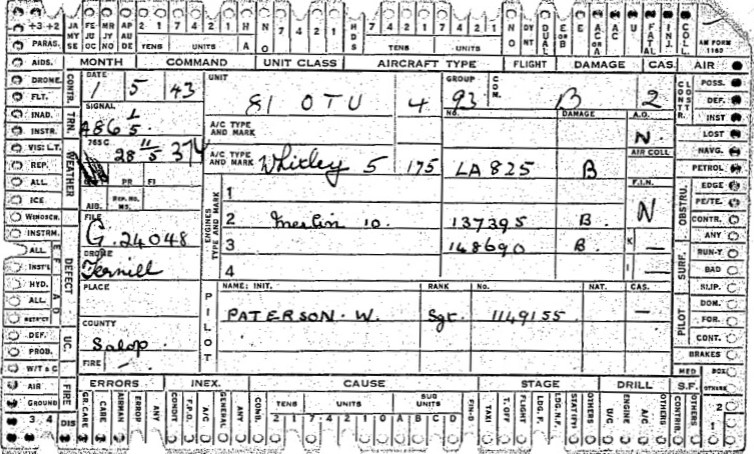 +3 +2 JA MY SE FE JU OC MR JY NO AP AU DE 2 1 7 4 2 1 H A N O 7 4 2 1 H D S 7 4 2 1 7 4 2 1 N O DY NT DUAL E or B E AC or A AC U FATAL INJ. COL. AM FORM 1180
TENS UNITS TENS UNITS
PARAS.
AIDS. MONTH COMMAND UNIT CLASS AIRCRAFT TYPE FLIGHT DAMAGE CAS. AIR
DRONE CONTR. DATE 1 5 43 UNIT 81 OTU 4 GROUP 93 COM. B 2 CONTR. POSS.
FLT. DEF.
INAD. TRN. SIGNAL A86 1/5 A/C TYPE AND MARK NO. DAMAGE A.O. N. INST
INSTR. LOST
VIS: L.T. WEATHER 765 C 28 11/5 374 A/C TYPE AND MARK Whitley 5 175 LA 825 B AIR COLL NAVG.
REP. PR FI PETROL
ALL F.I.N. N OBSTRU. EDGE
ICE AIB. REP. NO. MS. ENGINES TYPE AND MARK 1 PE/TE.
WINDSCR. FILE G.24048 2 Merlin 10. 137395 B. CONTR.
INSTRM. DEFECT 3 148690 B. K — ANY
ALL DROME Ternill SURF. RUN-Y
INST'L 4 I — BAD
HYD. PLACE PILOT NAME: INIT. RANK No. NAT. CAS. SLIP.
ALL PILOT DOM.
RETR'CT PATERSON. W. Sgt. 1149155 — FOR.
DEF. UC. COUNTY Salop CONT.
PROB. BRAKES
W/T & C FIRE — MED BOX
AIR FIRE ERRORS INEX. CAUSE STAGE DRILL S.F. OTHERS
GROUND GR. CARE CARE AIRMAN ERROR ANY CONDIT F.P.D. A/C GENERAL ANY COND. TENS UNITS SUB UNITS FIN-D TAXI T. OFF FLIGHT LDG. F. LDG. N.F. STAT'Y OTHERS U/C ENGINE A/C OTHERS CONTRIB. OTHERS 2
3 4 DIS 2 1 7 4 2 1 0 A B C D 1